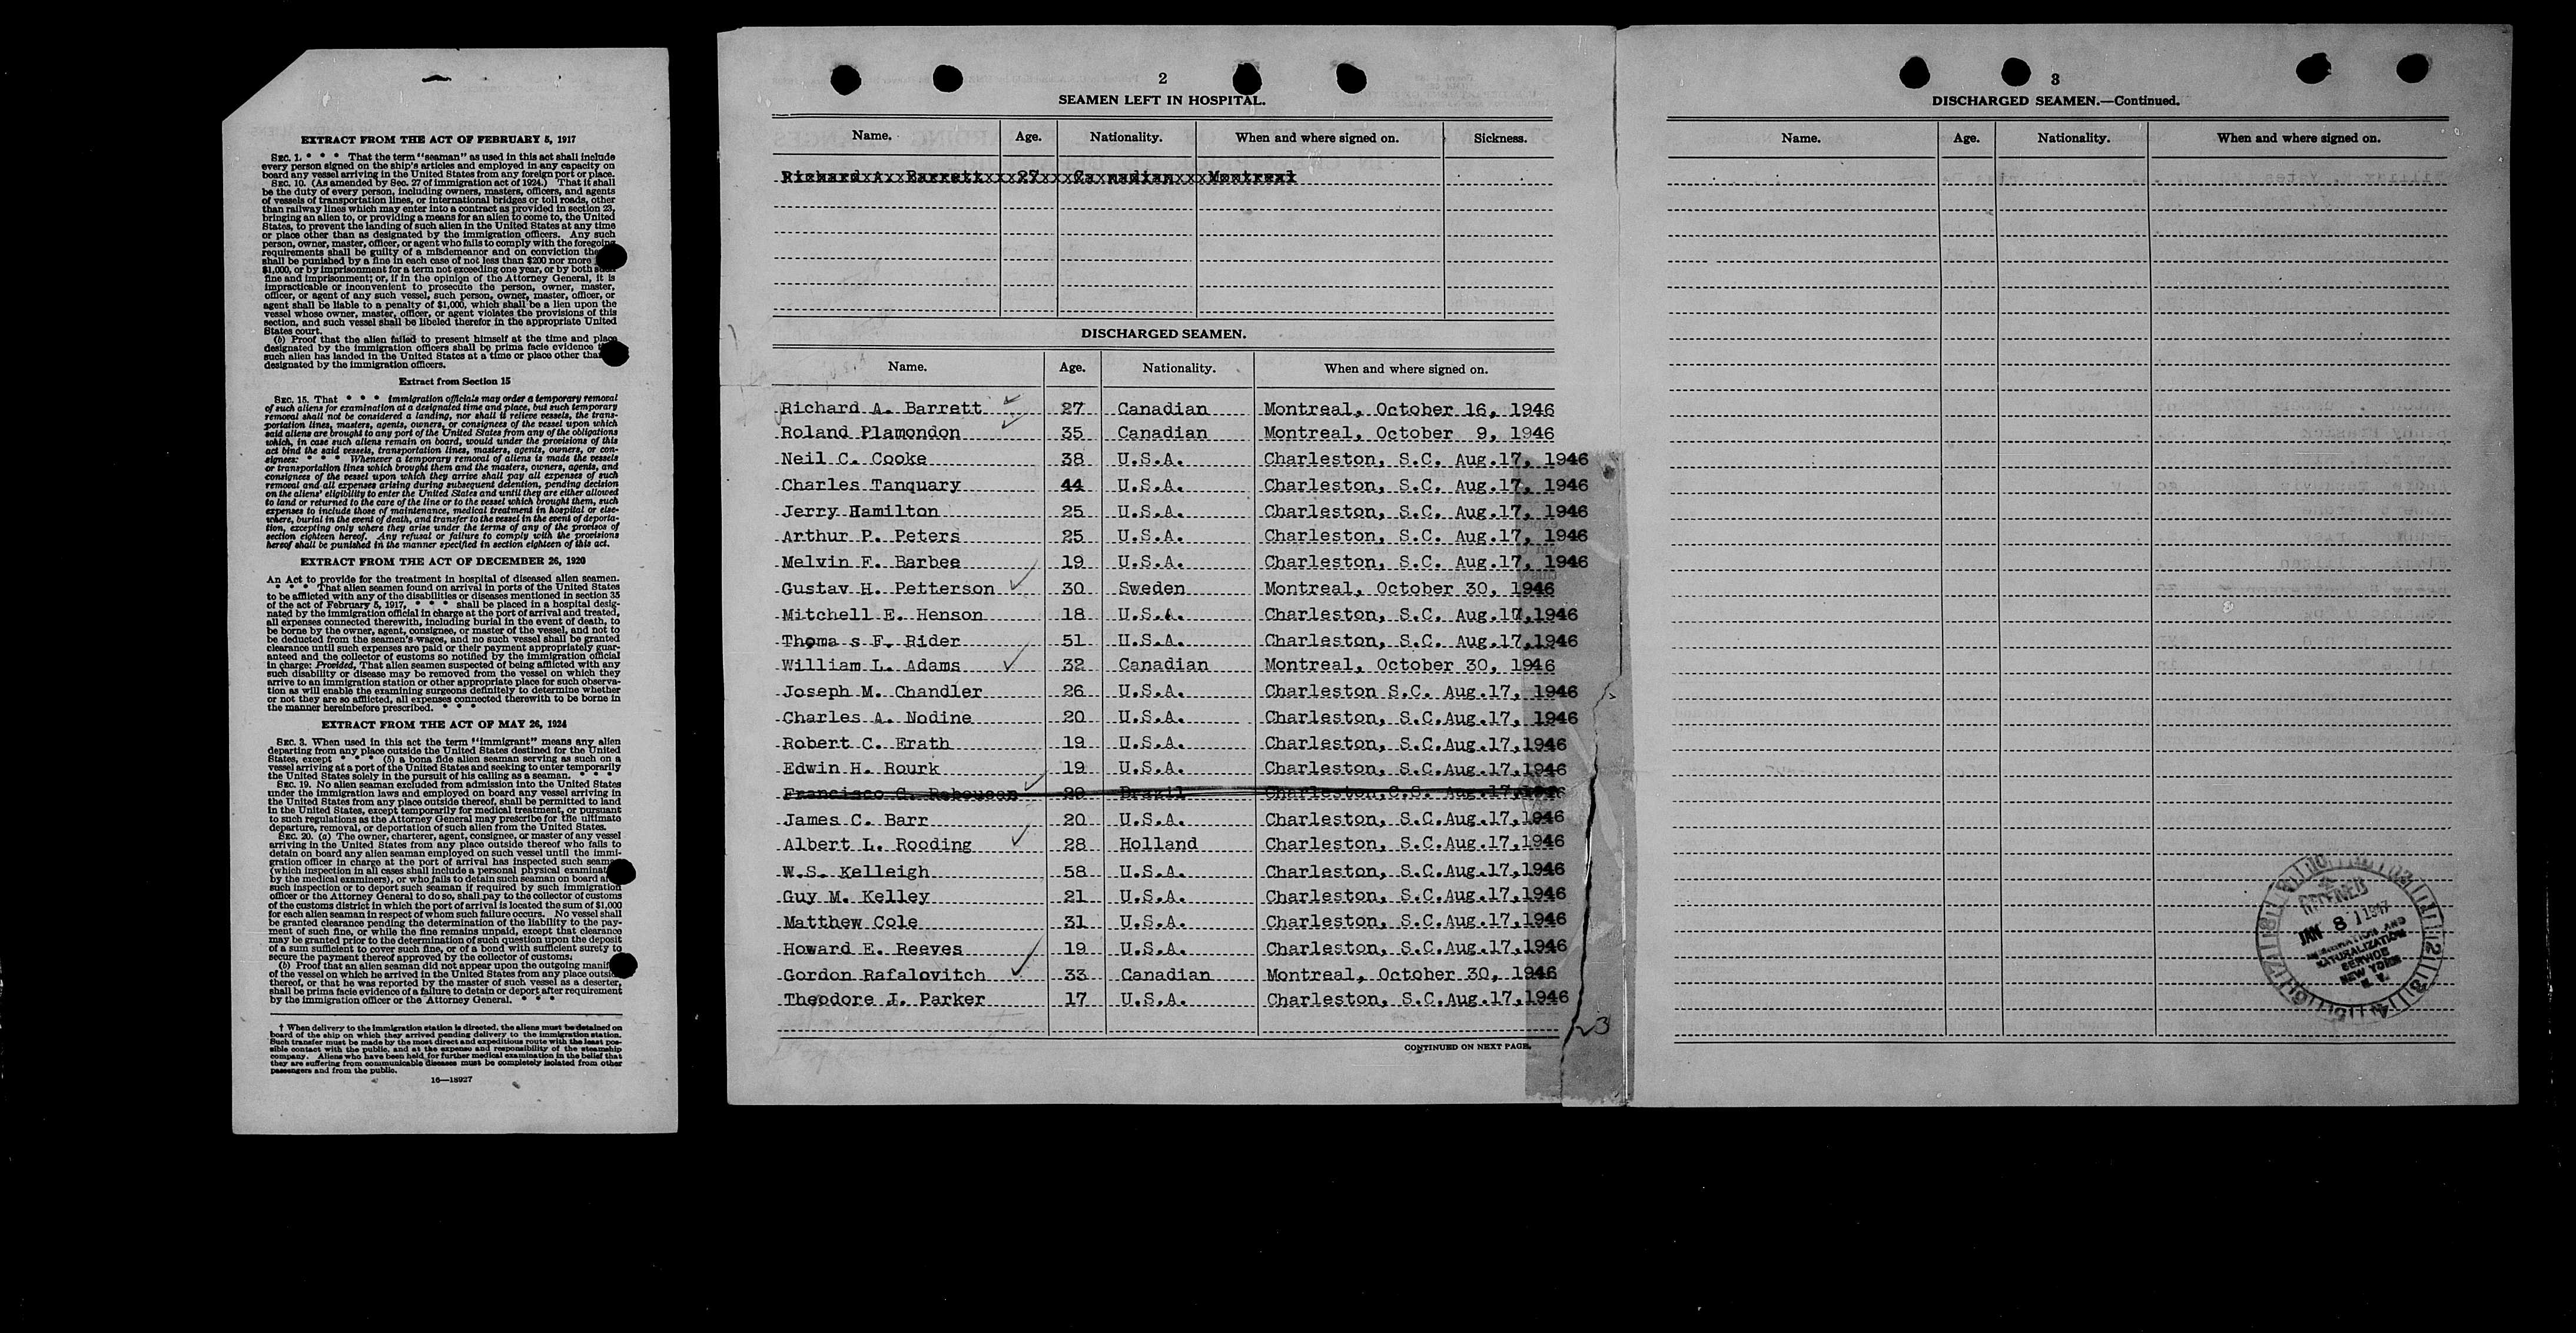 EXTRACT FROM THE ACT OF FEBRUARY 5, 1917
SEC. 1. * * * That the term "seaman" as used in this act shall include
every person signed on the ship's articles and employed in any capacity on
board any vessel arriving in the United States from any foreign port or place.
SEC. 10. (As amended by Sec. 27 of immigration act of 1924.) That it shall
be the duty of every person, including owners, masters, officers, and agents
of vessels of transportation lines, or international bridges or toll roads, other
than railway lines which may enter into a contract as provided in section 23,
bringing an alien to, or providing a means for an alien to come to, the United
States, to prevent the landing of such alien in the United States at any time
or place other than as designated by the immigration officers. Any such
person, owner, master, officer, or agent who fails to comply with the foregoing
requirements shall be guilty of a misdemeanor and on conviction
shall be punished by a fine in each case of not less than $200 nor more
$1,000, or by imprisonment for a term not exceeding one year, or by both
fine and imprisonment; or, if in the opinion of the Attorney General, it is
impracticable or inconvenient to prosecute the person, owner, master,
officer, or agent of any such vessel, such person, owner, master, officer, or
agent shall be liable to a penalty of $1,000, which shall be a lien upon the
vessel whose owner, master, officer, or agent violates the provisions of this
section, and such vessel shall be libeled therefor in the appropriate United
States court.
(b) Proof that the alien failed to present himself at the time and place
designated by the immigration officers shall be prima facie evidence
such alien has landed in the United States at a time or place other than
designated by the immigration officers.
Extract from Section 15
SEC. 15. That * * * immigration officials may order a temporary removal
of such aliens for examination at a designated time and place, but such temporary
removal shall not be considered a landing, nor shall it relieve vessels, the trans-
portation lines, masters, agents, owners, or consignees of the vessel upon which
said aliens are brought to any port of the United States from any of the obligations
which, in case such aliens remain on board, would under the provisions of this
act bind the said vessels, transportation lines, masters, agents, owners, or con-
signees: * * * Whenever a temporary removal of aliens is made the vessels
or transportation lines which brought them and the masters, owners, agents, and
consignees of the vessel upon which they arrive shall pay all expenses of such
removal and all expenses arising during subsequent detention, pending decision
on the aliens' eligibility to enter the United States and until they are either allowed
to land or returned to the care of the line or to the vessel which brought them, such
expenses to include those of maintenance, medical treatment in hospital or else-
where, burial in the event of death, and transfer to the vessel in the event of deporta-
tion, excepting only where they arise under the terms of any of the provisos of
section eighteen hereof. Any refusal or failure to comply with the provisions
hereof shall be punished in the manner specified in section eighteen of this act.
EXTRACT FROM THE ACT OF DECEMBER 26, 1920
An Act to provide for the treatment in hospital of diseased alien seamen.
* * * That alien seamen found on arrival in ports of the United States
to be afflicted with any of the disabilities or diseases mentioned in section 35
of the act of February 5, 1917, * * * shall be placed in a hospital desig-
nated by the immigration official in charge at the port of arrival and treated,
all expenses connected therewith, including burial in the event of death, to
be borne by the owner, agent, consignee, or master of the vessel, and not to
be deducted from the seamen's wages, and no such vessel shall be granted
clearance until such expenses are paid or their payment appropriately guar-
anteed and the collector of customs so notified by the immigration official
in charge: Provided, That alien seamen suspected of being afflicted with any
such disability or disease may be removed from the vessel on which they
arrive to an immigration station or other appropriate place for such observa-
tion as will enable the examining surgeons definitely to determine whether
or not they are so afflicted, all expenses connected therewith to be borne in
the manner hereinbefore prescribed. * * *
EXTRACT FROM THE ACT OF MAY 26, 1924
SEC. 3. When used in this act the term "immigrant" means any alien
departing from any place outside the United States destined for the United
States, except * * * (5) a bona fide alien seaman serving as such on a
vessel arriving at a port of the United States and seeking to enter temporarily
the United States solely in the pursuit of his calling as a seaman. * * *
SEC. 19. No alien seaman excluded from admission into the United States
under the immigration laws and employed on board any vessel arriving in
the United States from any place outside thereof, shall be permitted to land
in the United States, except temporarily for medical treatment, or pursuant
to such regulations as the Attorney General may prescribe for the ultimate
departure, removal, or deportation of such alien from the United States.
SEC. 20. (a) The owner, charterer, agent, consignee, or master of any vessel
arriving in the United States from any place outside thereof who fails to
detain on board any alien seaman employed on such vessel until the immi-
gration officer in charge at the port of arrival has inspected such
(which inspection in all cases shall include a personal physical
by the medical examiners), or who fails to detain such seaman on board
such inspection or to deport such seaman if required by such immigration
officer or the Attorney General to do so, shall pay to the collector of customs
of the customs district in which the port of arrival is located the sum of $1,000
for each alien seaman in respect of whom such failure occurs. No vessel shall
be granted clearance pending the determination of the liability to the pay-
ment of such fine, or while the fine remains unpaid, except that clearance
may be granted prior to the determination of such question upon the deposit
of a sum sufficient to cover such fine, or of a bond with sufficient surety to
secure the payment thereof approved by the collector of customs.
(b) Proof that an alien seaman did not appear upon the outgoing
of the vessel on which he arrived in the United States from any place
thereof, or that he was reported by the master of such vessel as a deserter,
shall be prima facie evidence of a failure to detain or deport after requirement
by the immigration officer or the Attorney General. * * *
† When delivery to the immigration station is directed, the aliens must be detained on
board of the ship on which they arrived pending delivery to the immigration station.
Such transfer must be made by the most direct and expeditious route with the least pos-
sible contact with the public, and at the expense and responsibility of the steamship
company. Aliens who have been held for further medical examination in the belief that
they are suffering from communicable diseases must be completely isolated from other
passengers and from the public.
16—18927
2
SEAMEN LEFT IN HOSPITAL.
Name. Age. Nationality. When and where signed on. Sickness.
Richard A. Barrett 27 Canadian Montreal
DISCHARGED SEAMEN.
Name. Age. Nationality. When and where signed on.
Richard A. Barrett 27 Canadian Montreal, October 16, 1946
Roland Plamondon 35 Canadian Montreal, October 9, 1946
Neil C. Cooke 38 U.S.A. Charleston, S.C. Aug.17, 1946
Charles Tanquary 44 U.S.A. Charleston, S.C. Aug.17, 1946
Jerry Hamilton 25 U.S.A. Charleston, S.C. Aug.17, 1946
Arthur P. Peters 25 U.S.A. Charleston, S.C. Aug.17, 1946
Melvin F. Barbee 19 U.S.A. Charleston, S.C. Aug.17, 1946
Gustav H. Petterson 30 Sweden Montreal, October 30, 1946
Mitchell E. Henson 18 U.S.A. Charleston, S.C. Aug.17,1946
Thoma s F. Rider 51 U.S.A. Charleston, S.C. Aug.17,1946
William L. Adams 32 Canadian Montreal, October 30, 1946
Joseph M. Chandler 26 U.S.A. Charleston S.C. Aug.17, 1946
Charles A. Nodine 20 U.S.A. Charleston, S.C.Aug.17, 1946
Robert C. Erath 19 U.S.A. Charleston, S.C.Aug.17,1946
Edwin H. Rourk 19 U.S.A. Charleston, S.C.Aug.17,1946
Francisco G. Reboucan 29 Brazil Charleston,C.S. Aug.17,1946
James C. Barr 20 U.S.A. Charleston, S.C.Aug.17,1946
Albert L. Rooding 28 Holland Charleston, S.C.Aug.17,1946
W.S. Kelleigh 58 U.S.A. Charleston, S.C.Aug.17,1946
Guy M. Kelley 21 U.S.A. Charleston, S.C.Aug.17,1946
Matthew Cole 31 U.S.A. Charleston, S.C.Aug.17,1946
Howard E. Reeves 19 U.S.A. Charleston, S.C.Aug.17,1946
Gordon Rafalovitch 33 Canadian Montreal, October 30, 1946
Theodore J. Parker 17 U.S.A. Charleston, S.C.Aug.17,1946
23
CONTINUED ON NEXT PAGE.
3
DISCHARGED SEAMEN.—Continued.
Name. Age. Nationality. When and where signed on.
RECEIVED
JAN 8 1947
IMMIGRATION AND
NATURALIZATION
SERVICE
NEW YORK
N. Y.